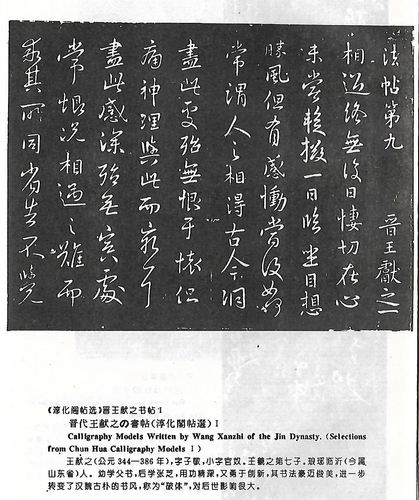 法帖第九 晉王獻之一
相過終無復日悽切在心
未嘗暫掇一日臨坐目想
勝風但有感慟當復如何
常謂人之相得古今洞
盡此處殆無恨于懷但
痛神理與此而窮耳
盡此感深殆無冥處
常恨況相遇之難而
乖其所同省告不覺
《淳化阁帖选》晋王献之书帖 I
晋代王献之の書帖(淳化閣帖選) I
Calligraphy Models Written by Wang Xanzhi of the Jin Dynasty. (Selections
from Chun Hua Calligraphy Models I )
王献之(公元344—386年),字子敬,小字官奴。王羲之第七子。琅琊临沂(今属
山东省)人。幼学父书,后学张芝,用功精深,又勇于创新,其书法豪迈俊美,进一步
转变了汉魏古朴的书风,称为“破体”,对后世影响很大。